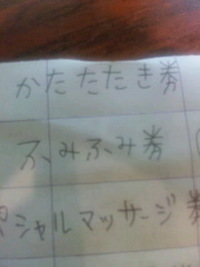 かたたたき券
ふみふみ券
ペシャルマッサージ券